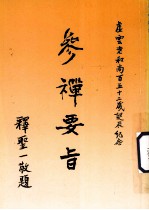 虛雲老和尚百五十三歲誕辰紀念
參禪要旨
釋聖一敬題